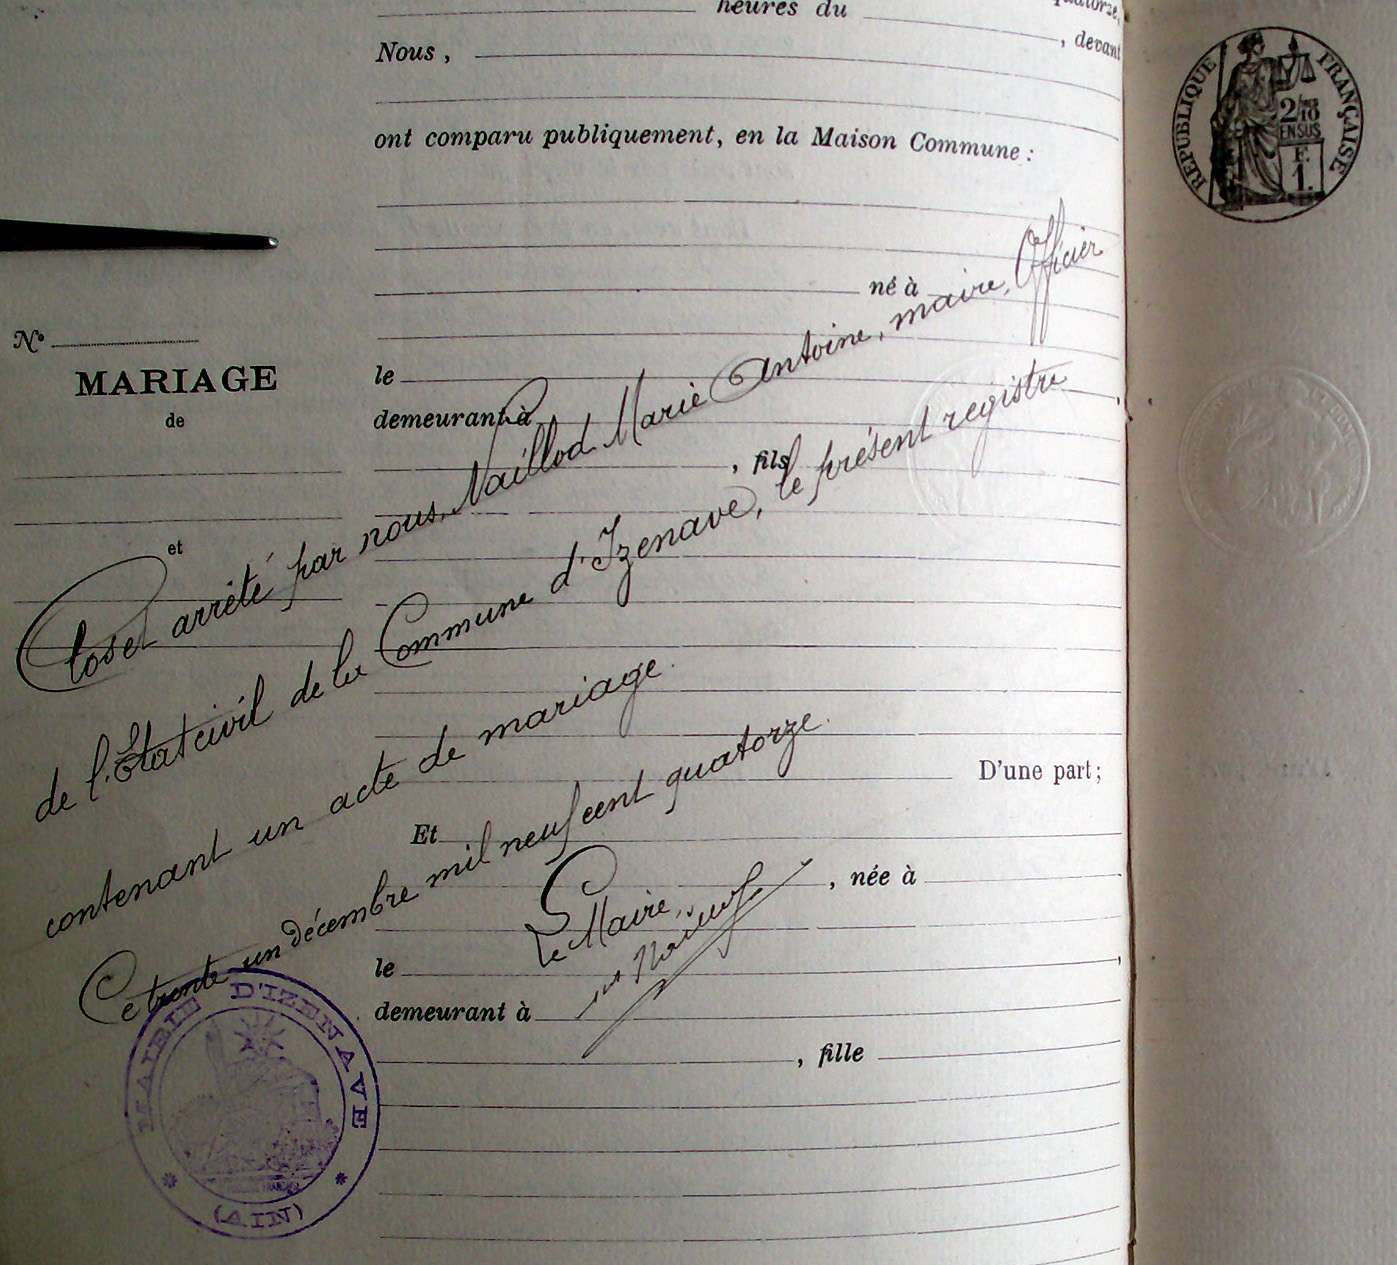 heures du
quatorze,
Nous , , devant
ont comparu publiquement, en la Maison Commune :
né à
N°
MARIAGE
de
et
le
demeurant à
, fils
Clos et arrêté par nous, Maillod Marie Antoine, maire, Officier
de l'Etat civil de la Commune d'Izenave, le présent registre
contenant un acte de mariage.
Ce trente un décembre mil neuf cent quatorze.
D'une part ;
Et
, née à
le
demeurant à
, fille
Le Maire,
MAIRIE D'IZENAVE
* (AIN) *
RÉPUBLIQUE FRANÇAISE
2/10
EN SUS
F.
1.